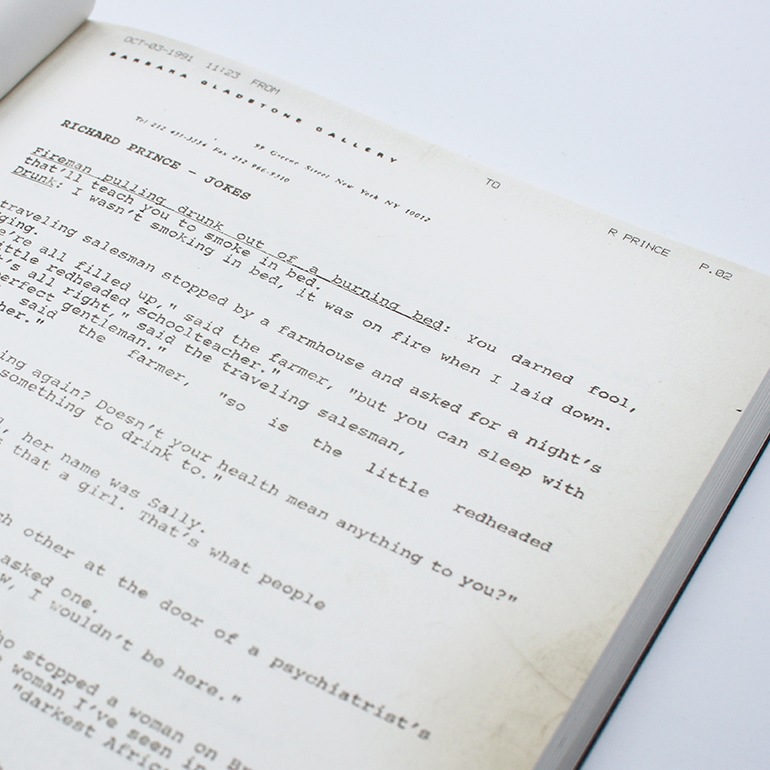 OCT-03-1991 11:23 FROM TO R PRINCE P.02
BARBARA GLADSTONE GALLERY
99 Greene Street New York NY 10012
Tel 212 431-3334 Fax 212 966-9310
RICHARD PRINCE - JOKES
Fireman pulling drunk out of a burning bed: you darned fool,
that'll teach you to smoke in bed.
Drunk: I wasn't smoking in bed, it was on fire when I laid down.
traveling salesman stopped by a farmhouse and asked for a night's
ging.
e're all filled up," said the farmer, "but you can sleep with
ittle redheaded schoolteacher."
t's all right," said the traveling salesman,
perfect gentleman."
said the farmer, "so is the little redheaded
her."
ing again? Doesn't your health mean anything to you?"
something to drink to."
, her name was Sally.
s that a girl. That's what people
ch other at the door of a psychiatrist's
asked one.
w, I wouldn't be here."
ho stopped a woman on Br
woman I've seen in
"darkest Afric